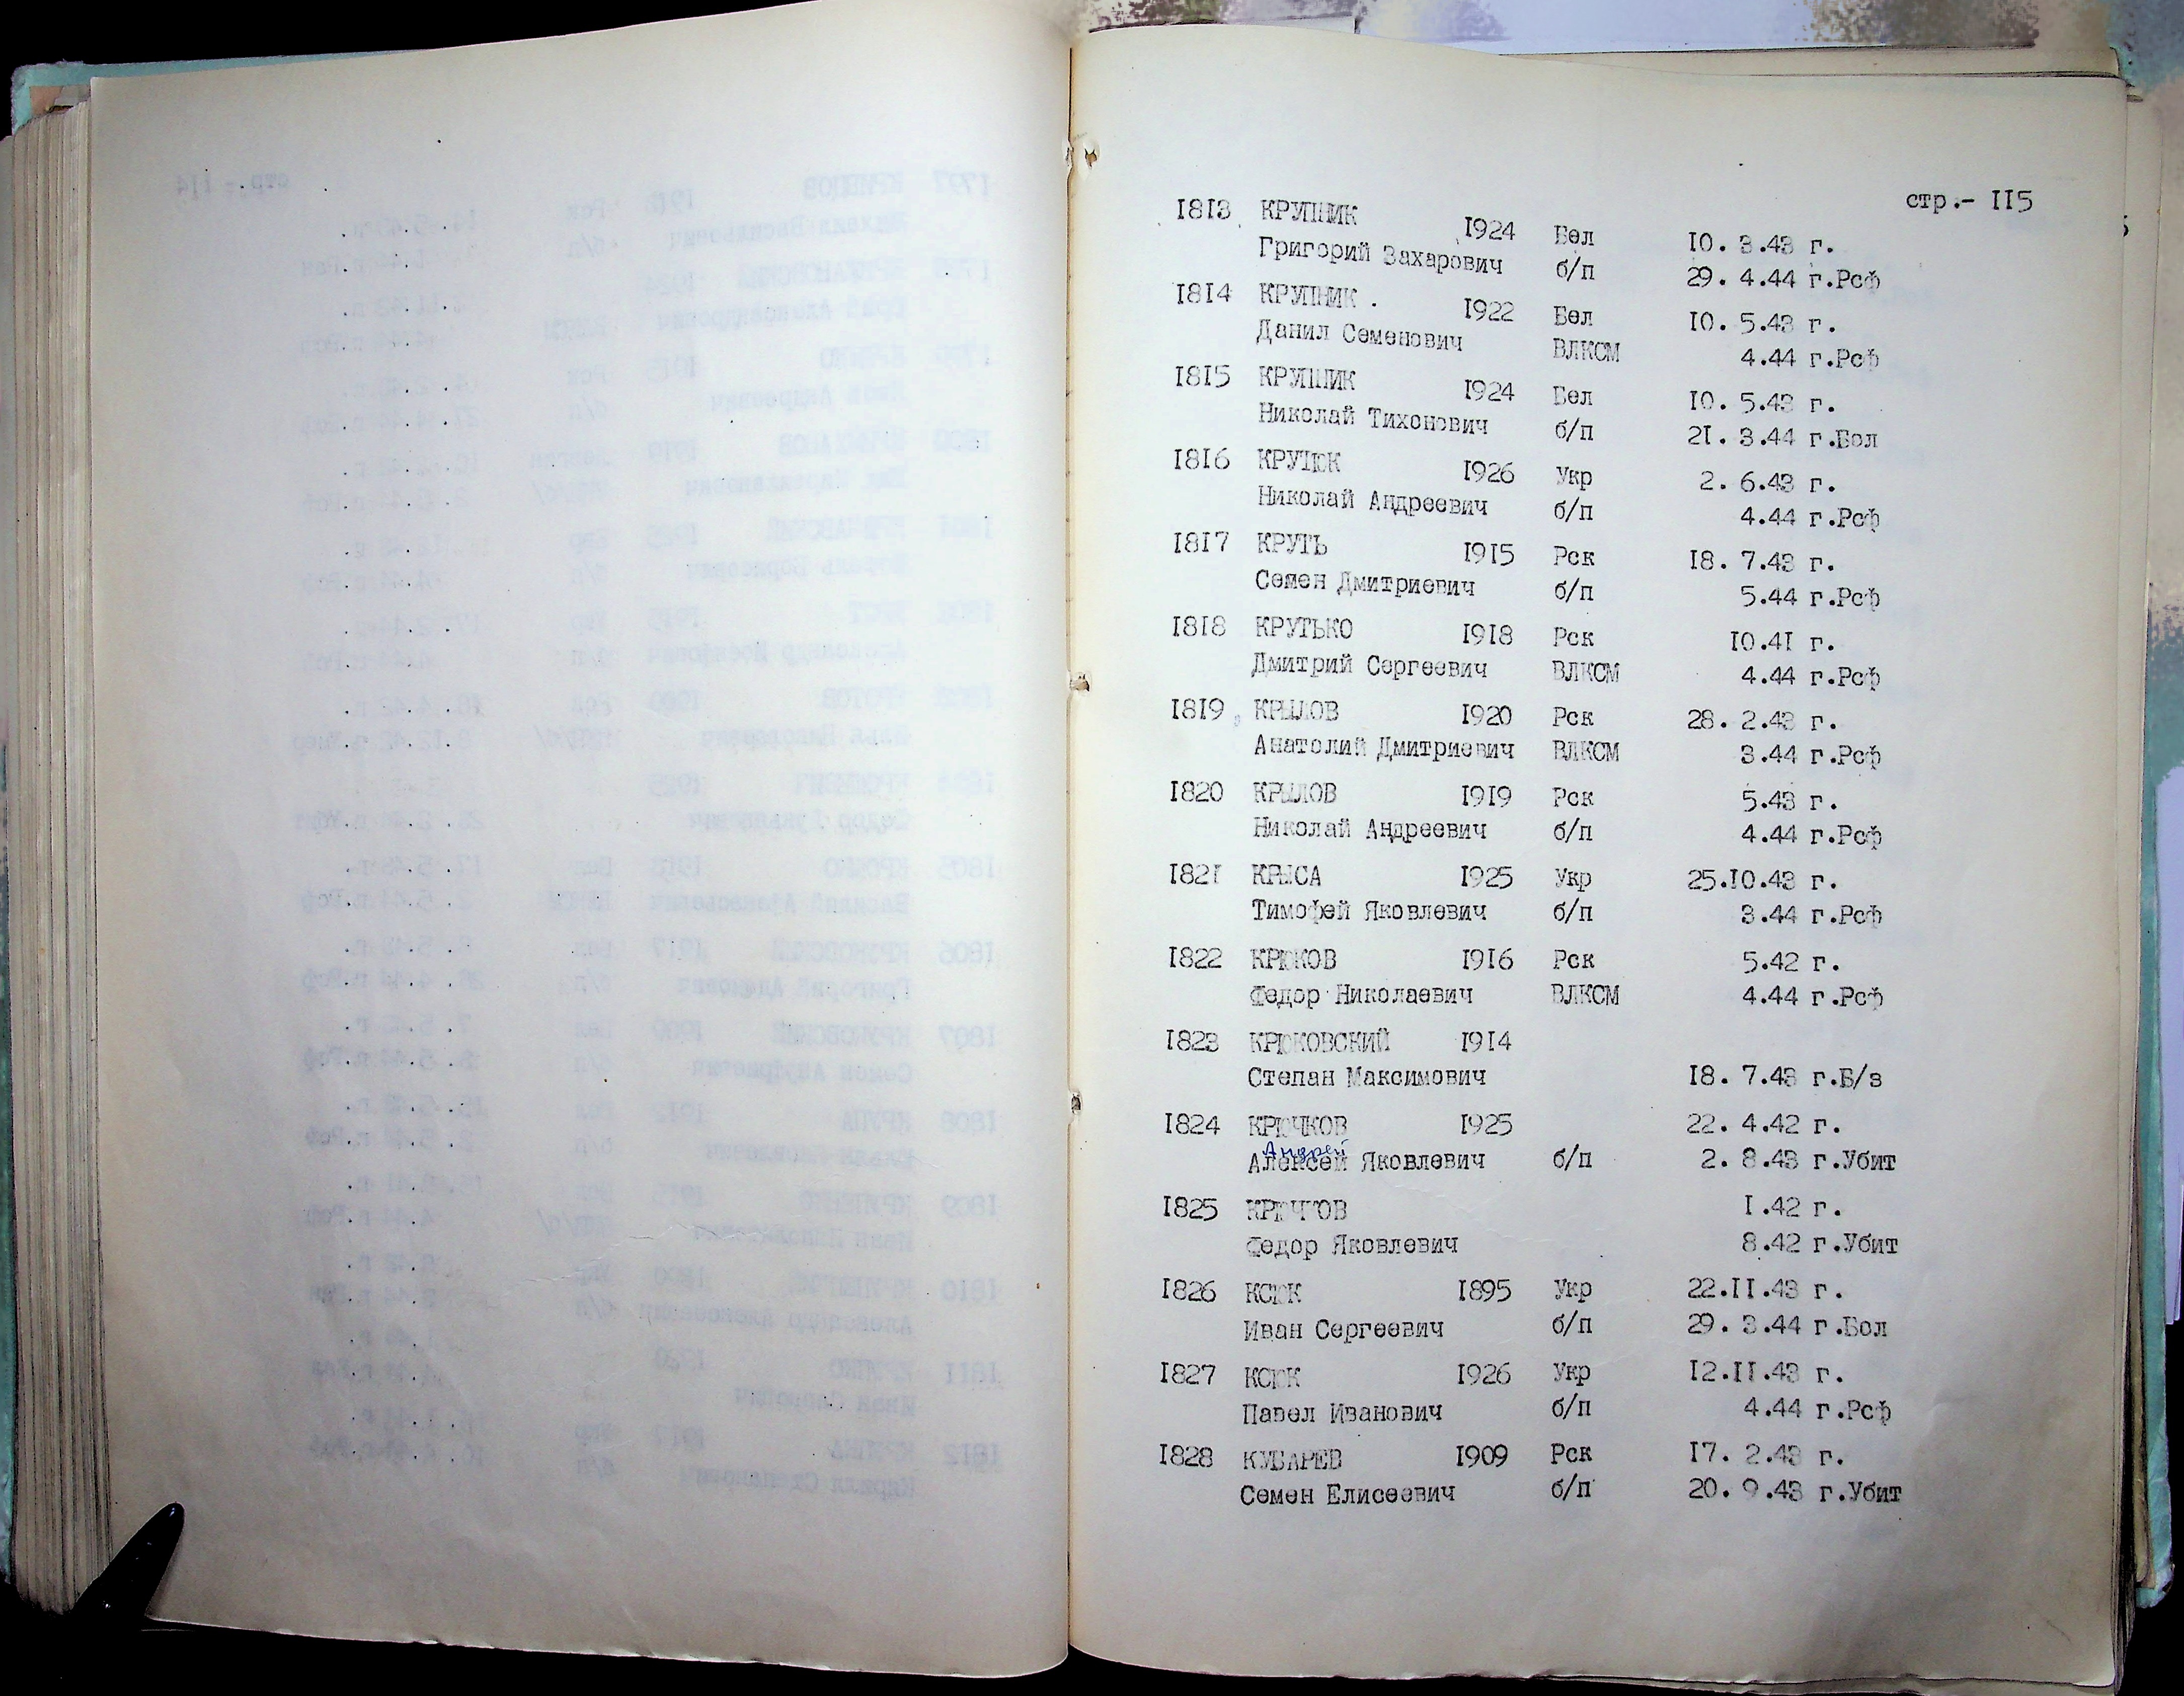 стр.- II5
I8I3 КРУПНИК I924 Бел I0. 3.43 г.
Григорий Захарович б/п 29. 4.44 г.Рсф
I8I4 КРУПНИК . I922 Бел I0. 5.43 г.
Данил Семенович ВЛКСМ 4.44 г.Рсф
I8I5 КРУПНИК I924 Бел I0. 5.43 г.
Николай Тихонович б/п 2I. 3.44 г.Бол
I8I6 I926 Укр 2. 6.43 г.
Николай Андреевич б/п 4.44 г.Рсф
I8I7 КРУТЬ I9I5 Рск I8. 7.43 г.
Семен Дмитриевич б/п 5.44 г.Рсф
I8I8 КРУТЬКО I9I8 Рск I0.4I г.
Дмитрий Сергеевич ВЛКСМ 4.44 г.Рсф
I8I9 КРЫЛОВ I920 Рск 28. 2.43 г.
Анатолий Дмитриевич ВЛКСМ 3.44 г.Рсф
I820 КРЫЛОВ I9I9 Рск 5.43 г.
Николай Андреевич б/п 4.44 г.Рсф
I82I КРЫСА I925 Укр 25.I0.43 г.
Тимофей Яковлевич б/п 3.44 г.Рсф
I822 КРЮКОВ I9I6 Рск 5.42 г.
Федор Николаевич ВЛКСМ 4.44 г.Рсф
I823 КРЮКОВСКИЙ I9I4
Степан Максимович I8. 7.43 г.Б/з
I824 КРЮЧКОВ I925 22. 4.42 г.
Андрей
Алексей Яковлевич б/п 2. 8.43 г.Убит
I825 КРЮЧКОВ I.42 г.
Федор Яковлевич 8.42 г.Убит
I826 КСЮК I895 Укр 22.II.43 г.
Иван Сергеевич б/п 29. 3.44 г.Бол
I827 КСЮК I926 Укр I2.II.43 г.
Павел Иванович б/п 4.44 г.Рсф
I828 КУБАРЕВ I909 Рск I7. 2.43 г.
Семен Елисеевич б/п 20. 9.43 г.Убит